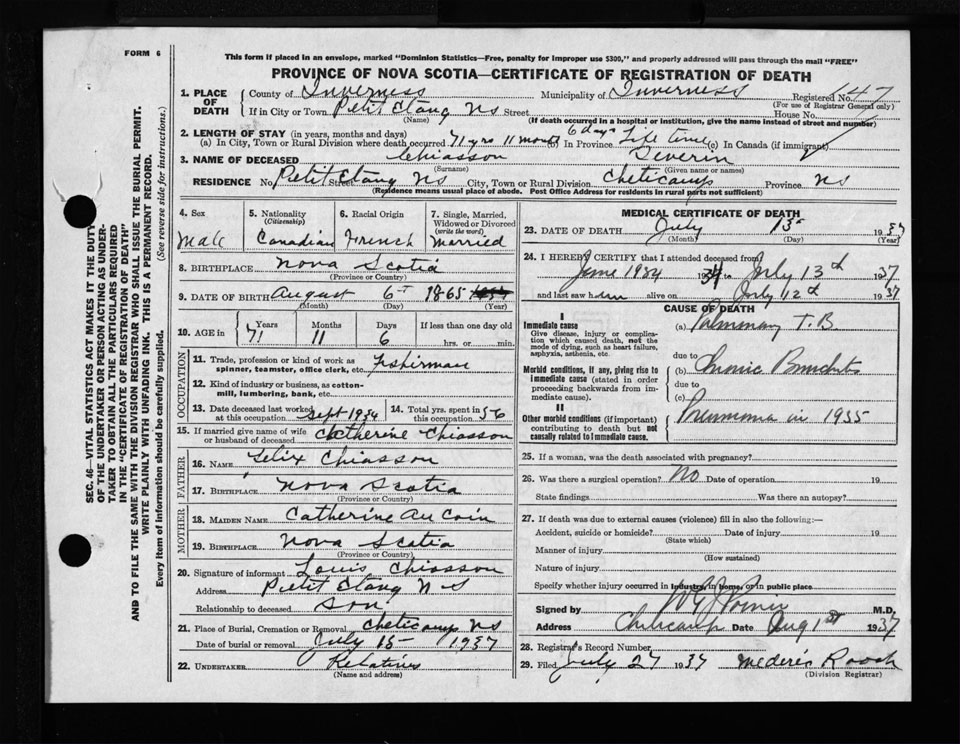 FORM 6
This form if placed in an envelope, marked "Dominion Statistics—Free, penalty for improper use $300," and properly addressed will pass through the mail "FREE"
PROVINCE OF NOVA SCOTIA—CERTIFICATE OF REGISTRATION OF DEATH
SEC. 46—VITAL STATISTICS ACT MAKES IT THE DUTY
OF THE UNDERTAKER OR PERSON ACTING AS UNDER-
TAKER TO OBTAIN ALL THE PARTICULARS REQUIRED
IN THE "CERTIFICATE OF REGISTRATION OF DEATH"
AND TO FILE THE SAME WITH THE DIVISION REGISTRAR WHO SHALL ISSUE THE BURIAL PERMIT.
WRITE PLAINLY WITH UNFADING INK. THIS IS A PERMANENT RECORD.
Every item of information should be carefully supplied. (See reverse side for instructions.)
1. PLACE OF DEATH County of Inverness Municipality of Inverness Registered No. 47
(For use of Registrar General only)
If in City or Town Petit Etang NS Street House No.
(Name) (If death occurred in a hospital or institution, give the name instead of street and number)
2. LENGTH OF STAY (in years, months and days)
(a) In City, Town or Rural Division where death occurred 71 yrs 11 month 6 days (b) In Province Life time (c) In Canada (if immigrant)
3. NAME OF DECEASED Chiasson Severin
(Surname) (Given name or names)
RESIDENCE No. Petit Etang NS Street City, Town or Rural Division Cheticamp Province NS
(Residence means usual place of abode. Post Office Address for residents in rural parts not sufficient)
4. Sex Male
5. Nationality (Citizenship) Canadian
6. Racial Origin French
7. Single, Married, Widowed or Divorced (write the word) Married
8. BIRTHPLACE Nova Scotia
(Province or Country)
9. DATE OF BIRTH August 6 1865
(Month) (Day) (Year)
10. AGE in Years Months Days If less than one day old
71 11 6 hrs. or min.
OCCUPATION
11. Trade, profession or kind of work as spinner, teamster, office clerk, etc. Fisherman
12. Kind of industry or business, as cotton-mill, lumbering, bank, etc.
13. Date deceased last worked at this occupation Sept 1934 14. Total yrs. spent in this occupation 56
15. If married give name of wife or husband of deceased Catherine Chiasson
FATHER
16. NAME Felix Chiasson
17. BIRTHPLACE Nova Scotia
(Province or Country)
MOTHER
18. MAIDEN NAME Catherine Au Coin
19. BIRTHPLACE Nova Scotia
(Province or Country)
20. Signature of informant Louis Chiasson
Address Petit Etang N S
Relationship to deceased Son
21. Place of Burial, Cremation or Removal Cheticamp NS
Date of burial or removal July 15 1937
22. UNDERTAKER Relatives
(Name and address)
MEDICAL CERTIFICATE OF DEATH
23. DATE OF DEATH July 13 1937
(Month) (Day) (Year)
24. I HEREBY CERTIFY that I attended deceased from
June 1934 to July 13th 1937
and last saw h alive on July 12th 1937
CAUSE OF DEATH
I
Immediate cause
Give disease, injury or complication which caused death, not the mode of dying, such as heart failure, asphyxia, asthenia, etc.
(a) Pulmonary T.B
due to
Morbid conditions, if any, giving rise to immediate cause (stated in order proceeding backwards from immediate cause)
(b) Chronic Bronchitis
due to
(c)
II
Other morbid conditions (if important) contributing to death but not causally related to immediate cause.
Pneumonia in 1935
25. If a woman, was the death associated with pregnancy?
26. Was there a surgical operation? NO Date of operation 19
State findings Was there an autopsy?
27. If death was due to external causes (violence) fill in also the following:—
Accident, suicide or homicide? Date of injury 19
(State which)
Manner of injury
(How sustained)
Nature of injury
Specify whether injury occurred in industry, in home, or in public place
Signed by M.D.
Address Cheticamp Date Aug 1st 1937
28. Registrar's Record Number
29. Filed July 27 1937 Mederic Roach
(Division Registrar)